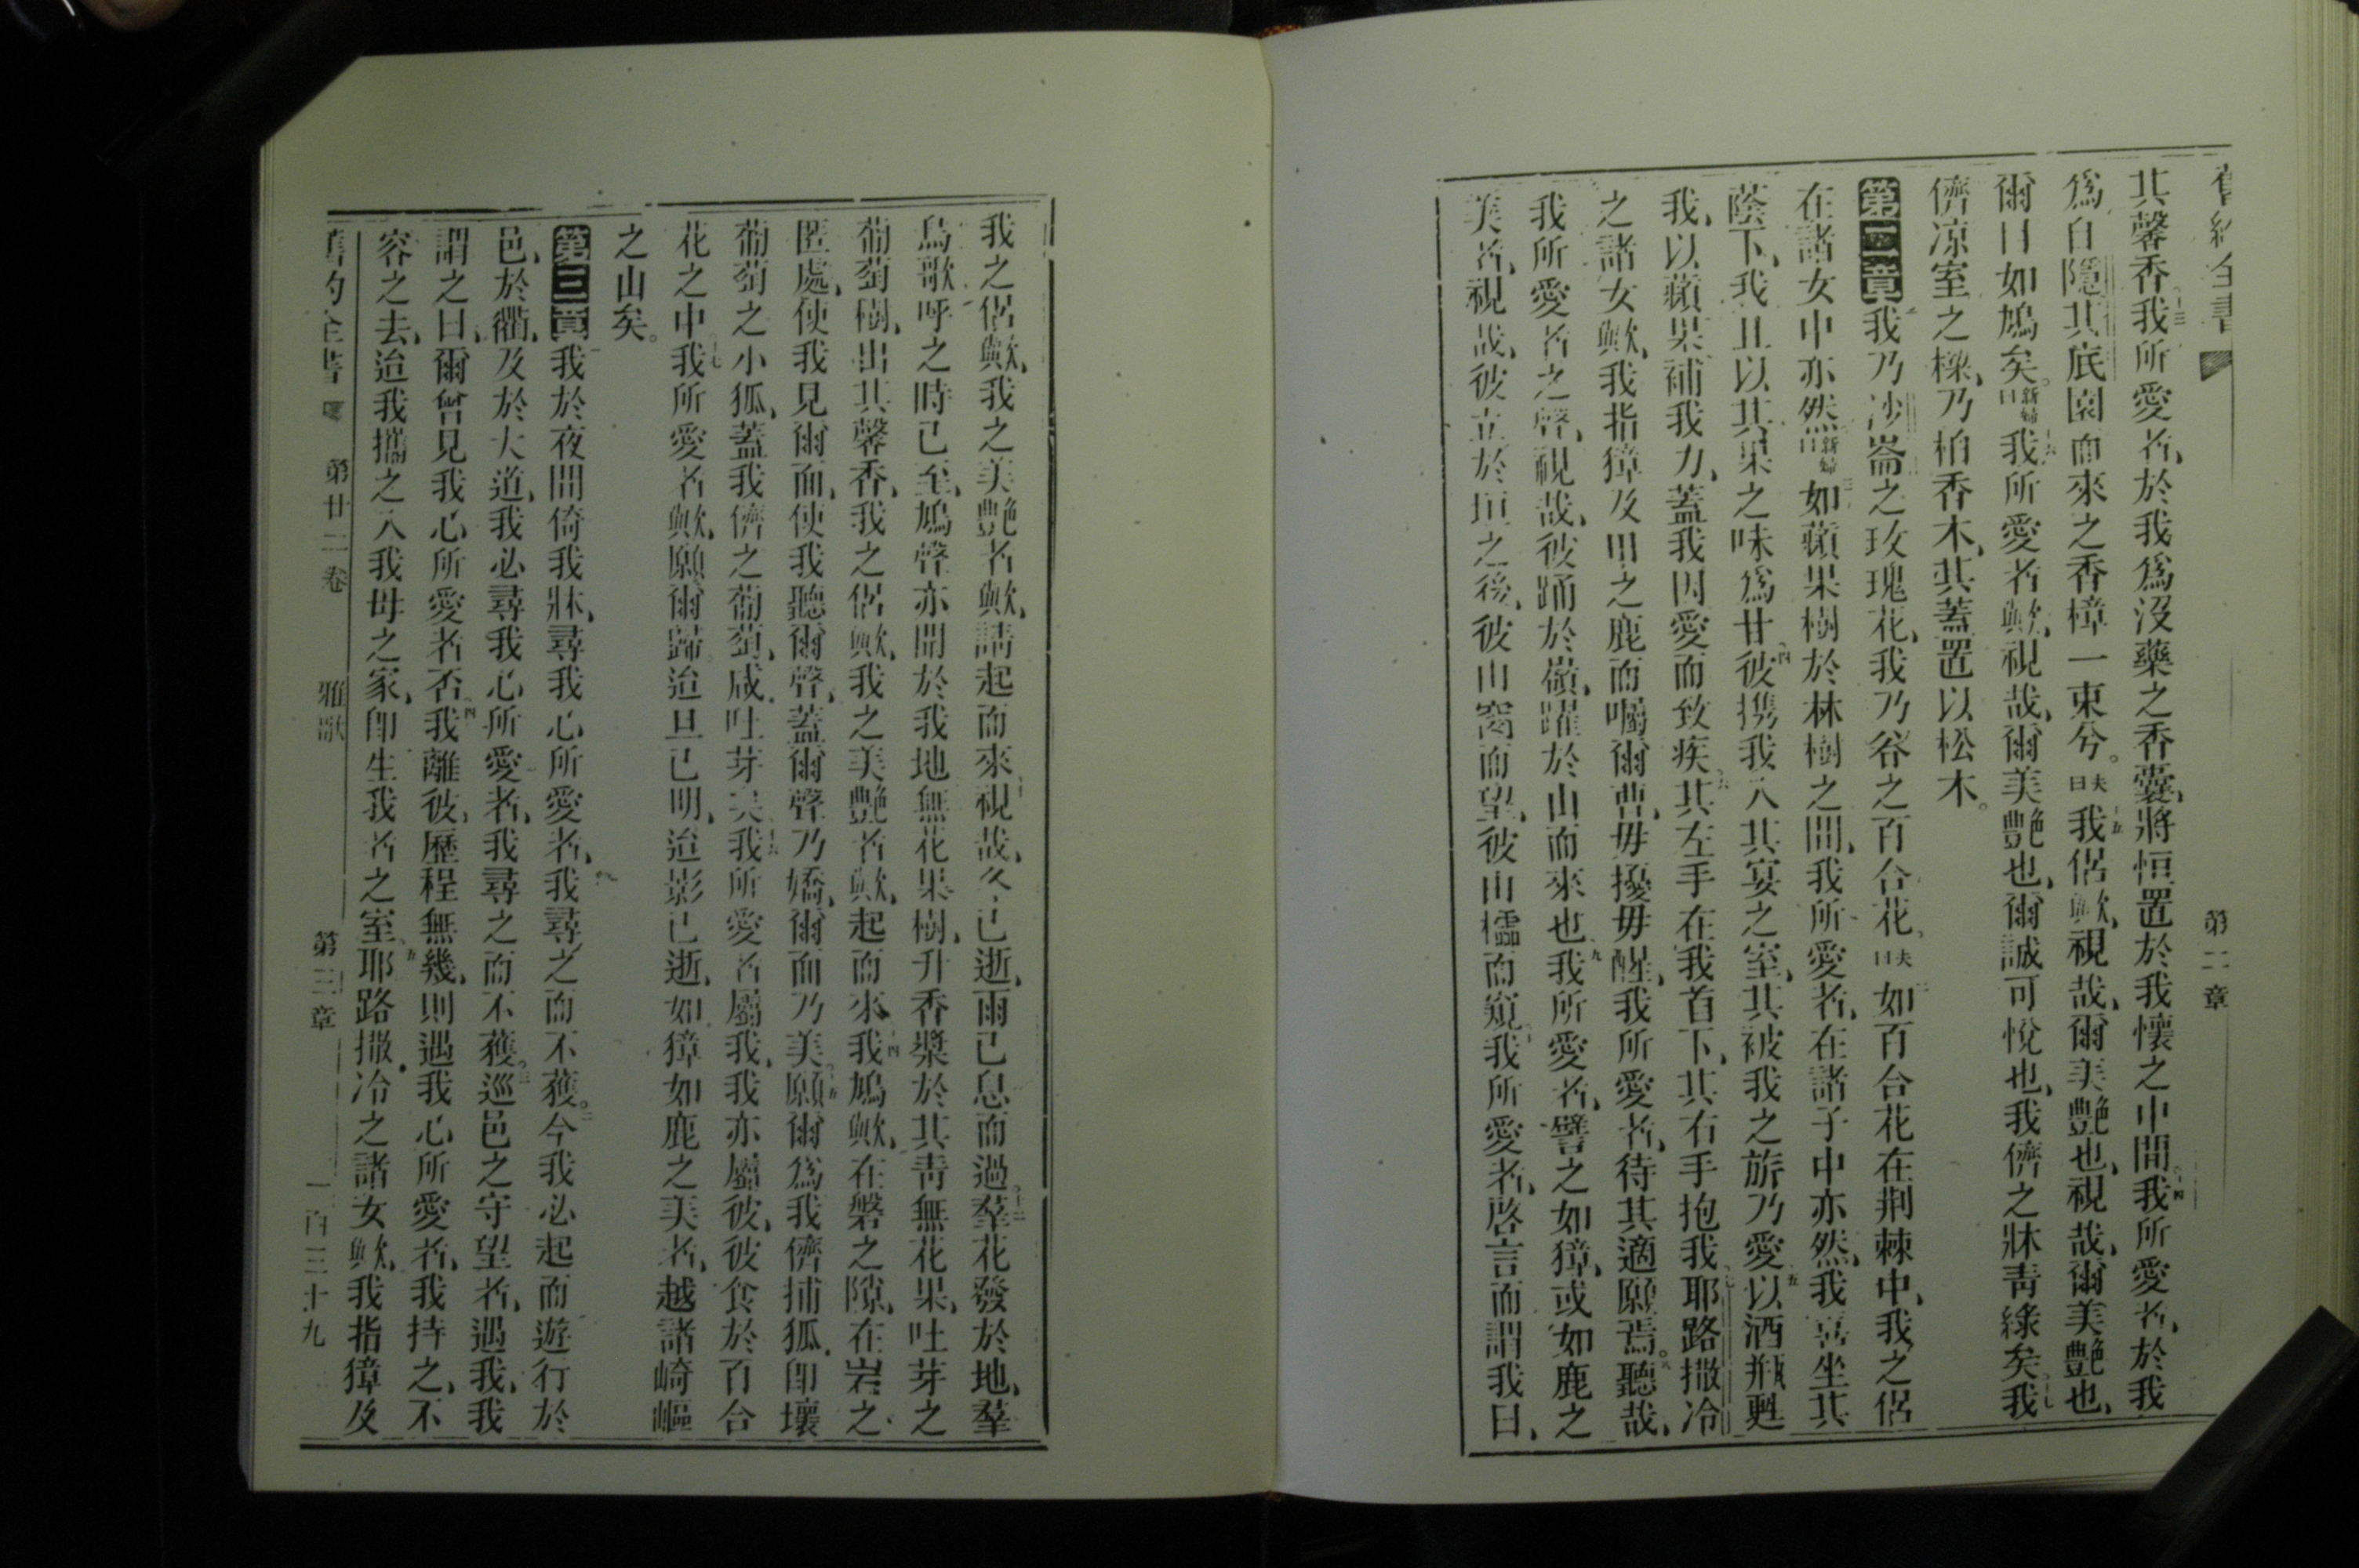 舊約全書
第二章
其馨香我所愛者、於我爲沒藥之香囊、將恒置於我懷之中間。十四我所愛者、於我
爲自隱其底園而來之香樟一束兮。夫曰十五我侶歟、視哉、爾美艷也、視哉、爾美艷也、
爾目如鳩矣。新婦曰十六我所愛者歟、視哉、爾美艷也、爾誠可悅也、我儕之牀靑綠矣十七我
儕凉室之樑、乃柏香木、其蓋置以松木。
第二章一我乃沙崙之玫瑰花、我乃谷之百合花。夫曰二如百合花在荆棘中、我之侶
在諸女中亦然新婦曰三如蘋果樹於林樹之間、我所愛者、在諸子中亦然、我喜坐其
蔭下、我且以其果之味爲甘四彼携我入其宴之室、其被我之旂乃愛五以酒瓶甦
我、以蘋果補我力、蓋我因愛而致疾六其左手在我首下、其右手抱我七耶路撒冷
之諸女歟、我指獐及田之鹿而囑爾曹、毋擾毋醒、我所愛者、待其適願焉。八聽哉、
我所愛者之聲、視哉、彼踊於嶺、躍於山而來也九我所愛者、譬之如獐、或如鹿之
美者、視哉、彼立於垣之後、彼由窗而望、彼由櫺而窺十我所愛者、啓言而謂我曰、
我之侶歟、我之美艷者歟、請起而來十一視哉、冬已逝、雨已息而過十二羣花發於地、羣
鳥歌呼之時已至、鳩聲亦聞於我地十三無花果樹、升香漿於其靑無花果、吐芽之
葡萄樹、出其馨香、我之侶歟、我之美艷者歟、起而來十四我鳩歟、在磐之隙、在岩之
匿處、使我見爾面、使我聽爾聲、蓋爾聲乃嬌、爾面乃美十五願爾爲我儕捕狐、卽壞
葡萄之小狐、蓋我儕之葡萄、咸吐芽矣十六我所愛者屬我、我亦屬彼、彼食於百合
花之中十七我所愛者歟、願爾歸。迨旦已明、迨影已逝、如獐如鹿之美者、越諸崎嶇
之山矣。
第三章一我於夜間倚我牀、尋我心所愛者、我尋之而不獲。二今我必起而遊行於
邑、於衢、及於大道、我必尋我心所愛者、我尋之而不獲。三巡邑之守望者、遇我、我
謂之曰、爾曾見我心所愛者否。四我離彼、歷程無幾、則遇我心所愛者、我持之、不
容之去、迨我攜之入我母之家、卽生我者之室。五耶路撒冷之諸女歟、我指獐及
舊約全書 第廿二卷 雅歌 第三章 一百三十九